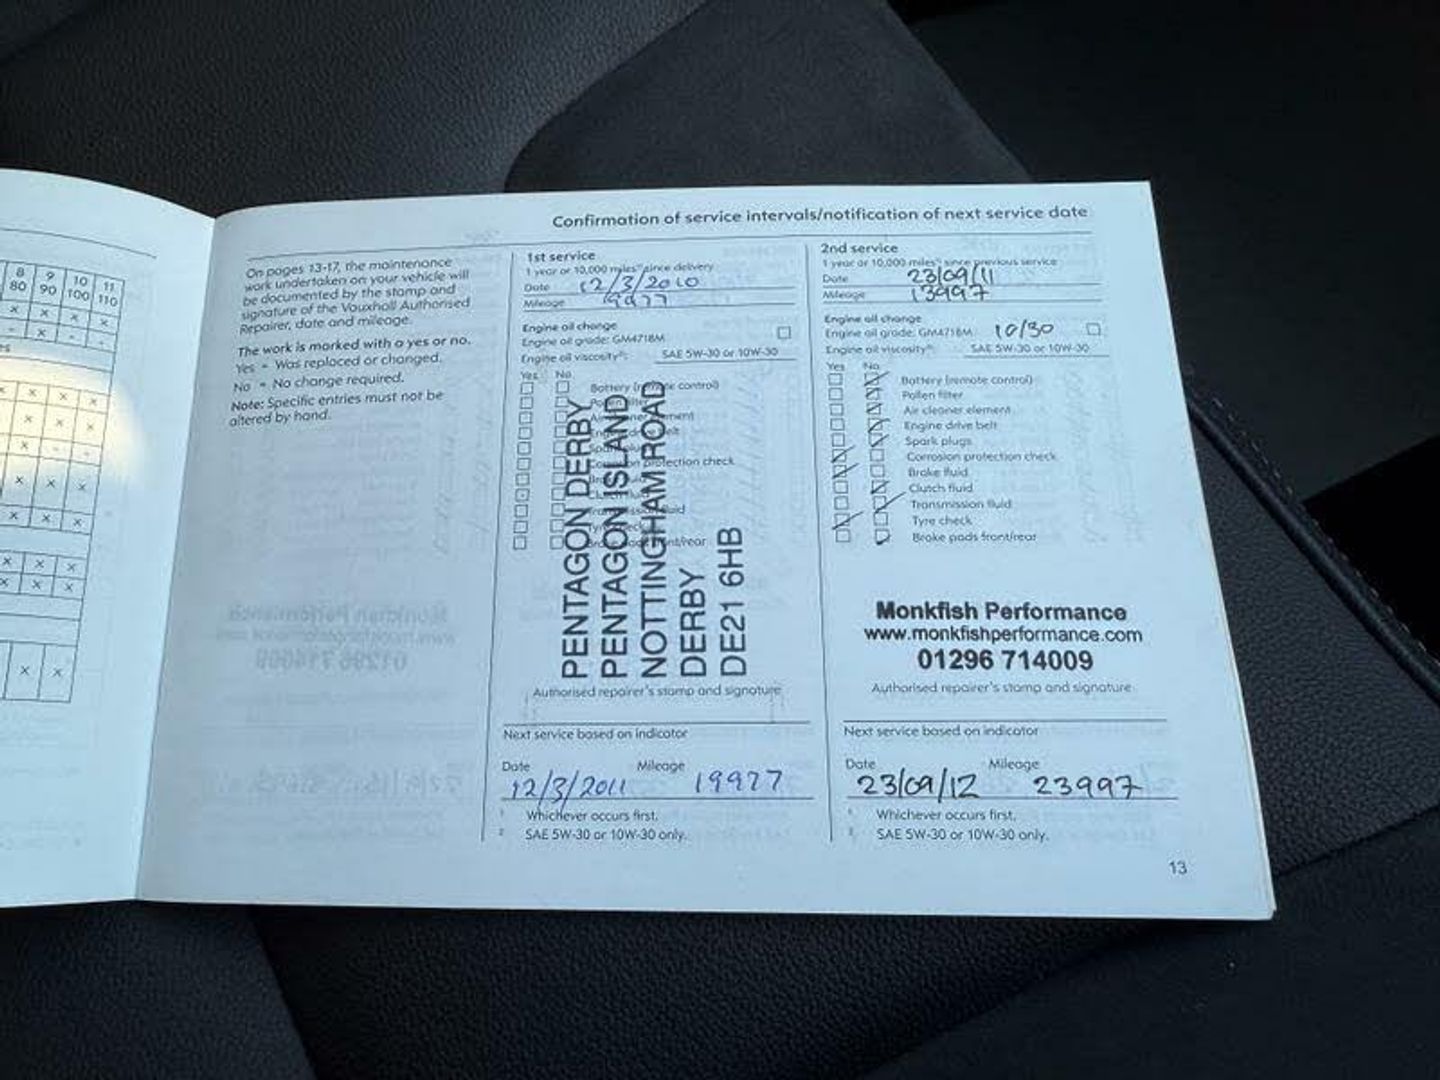 8 9 10 11
80 90 100 110
x x x x
- x - -
x x x x
x x x x
x x - -
x x x
x x x
x x x
x x x
x x
Confirmation of service intervals/notification of next service date
On pages 13-17, the maintenance
work undertaken on your vehicle will
be documented by the stamp and
signature of the Vauxhall Authorised
Repairer, date and mileage.
The work is marked with a yes or no.
Yes = Was replaced or changed.
No = No change required.
Note: Specific entries must not be
altered by hand.
1st service
1 year or 10,000 miles¹⁾ since delivery
Date 12/3/2010
Mileage 9977
Engine oil change
Engine oil grade: GM4718M
Engine oil viscosity²⁾: SAE 5W-30 or 10W-30
Yes No
Battery (remote control)
Pollen filter
Air cleaner element
Engine drive belt
Spark plugs
Corrosion protection check
Brake fluid
Clutch fluid
Transmission fluid
Tyre check
Brake pads front/rear
PENTAGON DERBY
PENTAGON ISLAND
NOTTINGHAM ROAD
DERBY
DE21 6HB
Authorised repairer's stamp and signature
Next service based on indicator
Date Mileage
12/3/2011 19977
1 Whichever occurs first.
2 SAE 5W-30 or 10W-30 only.
2nd service
1 year or 10,000 miles¹⁾ since previous service
Date 23/09/11
Mileage 13997
Engine oil change
Engine oil grade: GM4718M 10/30
Engine oil viscosity²⁾: SAE 5W-30 or 10W-30
Yes No
Battery (remote control)
Pollen filter
Air cleaner element
Engine drive belt
Spark plugs
Corrosion protection check
Brake fluid
Clutch fluid
Transmission fluid
Tyre check
Brake pads front/rear
Monkfish Performance
www.monkfishperformance.com
01296 714009
Authorised repairer's stamp and signature
Next service based on indicator
Date Mileage
23/09/12 23997
1 Whichever occurs first.
2 SAE 5W-30 or 10W-30 only.
13